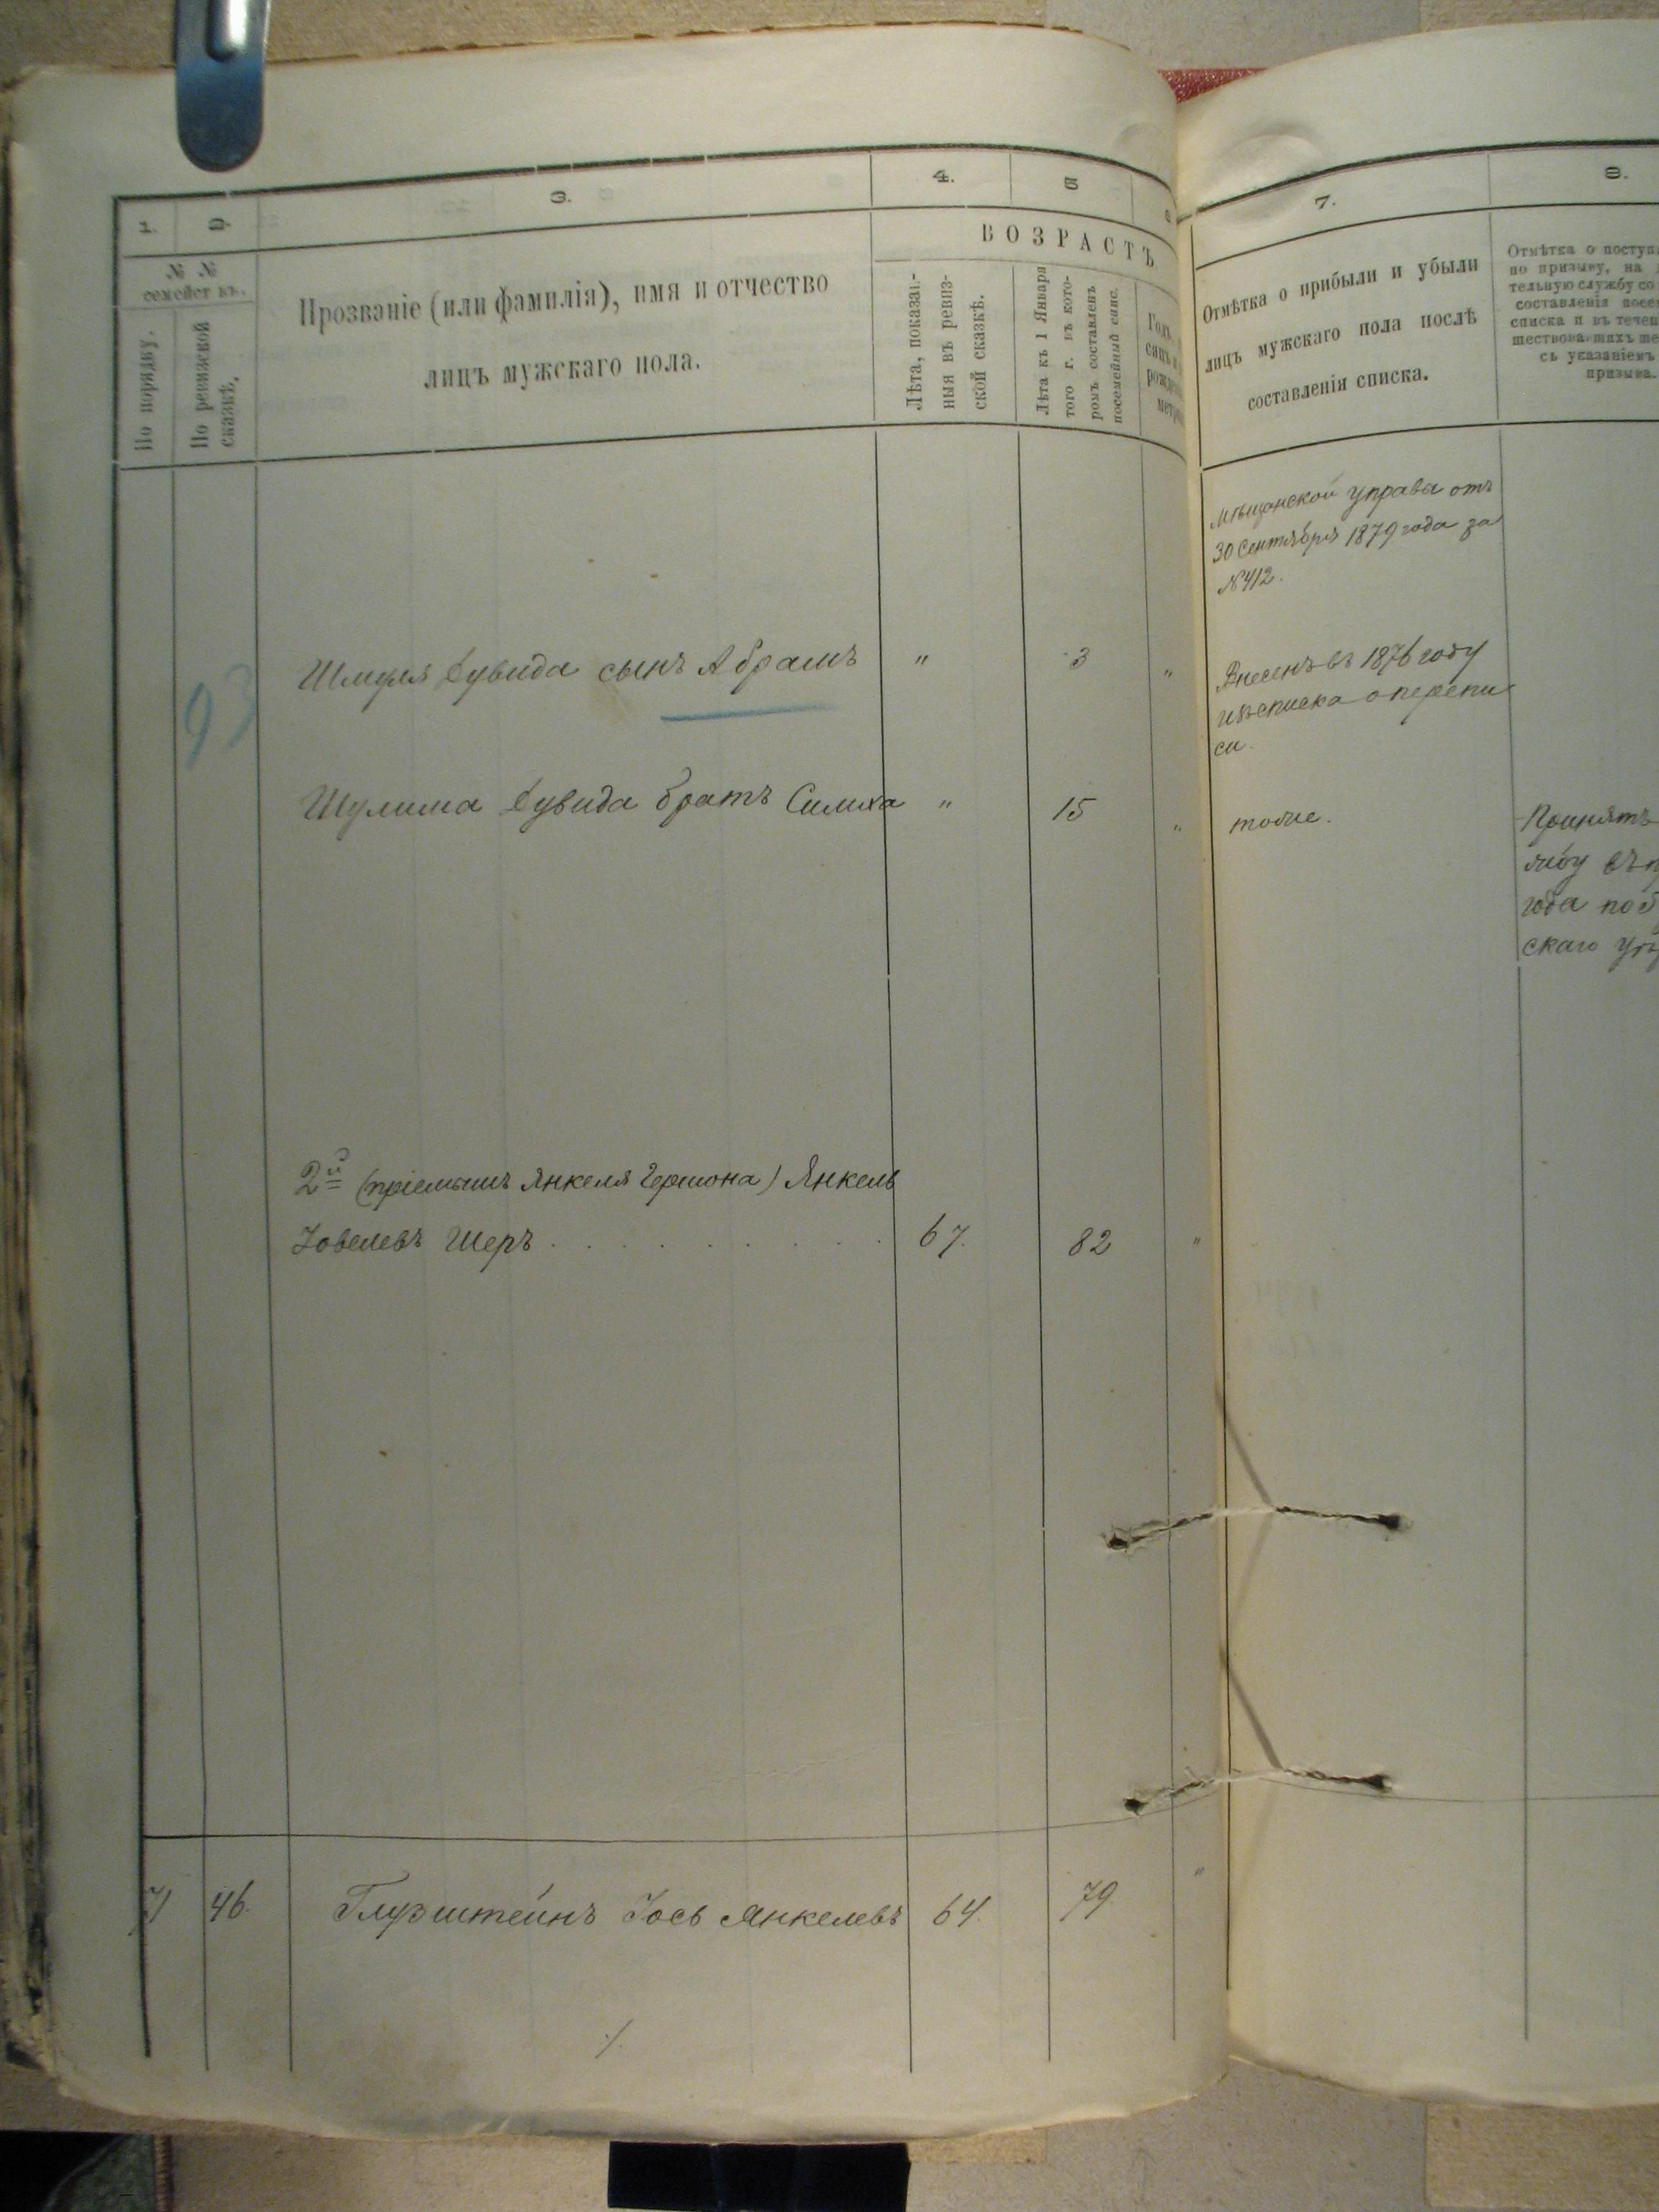 1.
2.
3.
4.
5
7.
8.
№ №
семействъ.
По порядку.
По ревизской
сказкѣ.
Прозваніе (или фамилія), имя и отчество
лицъ мужскаго пола.
ВОЗРАСТЪ
Лѣта, показан-
ныя въ ревиз-
ской сказкѣ.
Лѣта къ 1 Января
того г. въ кото-
ромъ составленъ
посемейный спис.
Отмѣтка о прибыли и убыли
лицъ мужскаго пола послѣ
составленія списка.
Отмѣтка о
по призыву, на
тельную службу со
составленія
списка и въ
съ указаніемъ
призыва.
мѣщанской управы отъ
30 Сентября 1879 года за
№ 412.
93
Шмуля Дувида сынъ Абрамъ " 3 "
Внесенъ въ 1876 году
изъ списка о перепи
си.
Шулима Дувида братъ Симха " 15 "
тоже.
Принятъ
года
скаго
2й (пріемышъ Янкеля Гершона) Янкель
Іовелевъ Шеръ . . . . . . . . . 67. 82 "
71 46. Глузштейнъ Іось Янкелевъ 64. 79. "